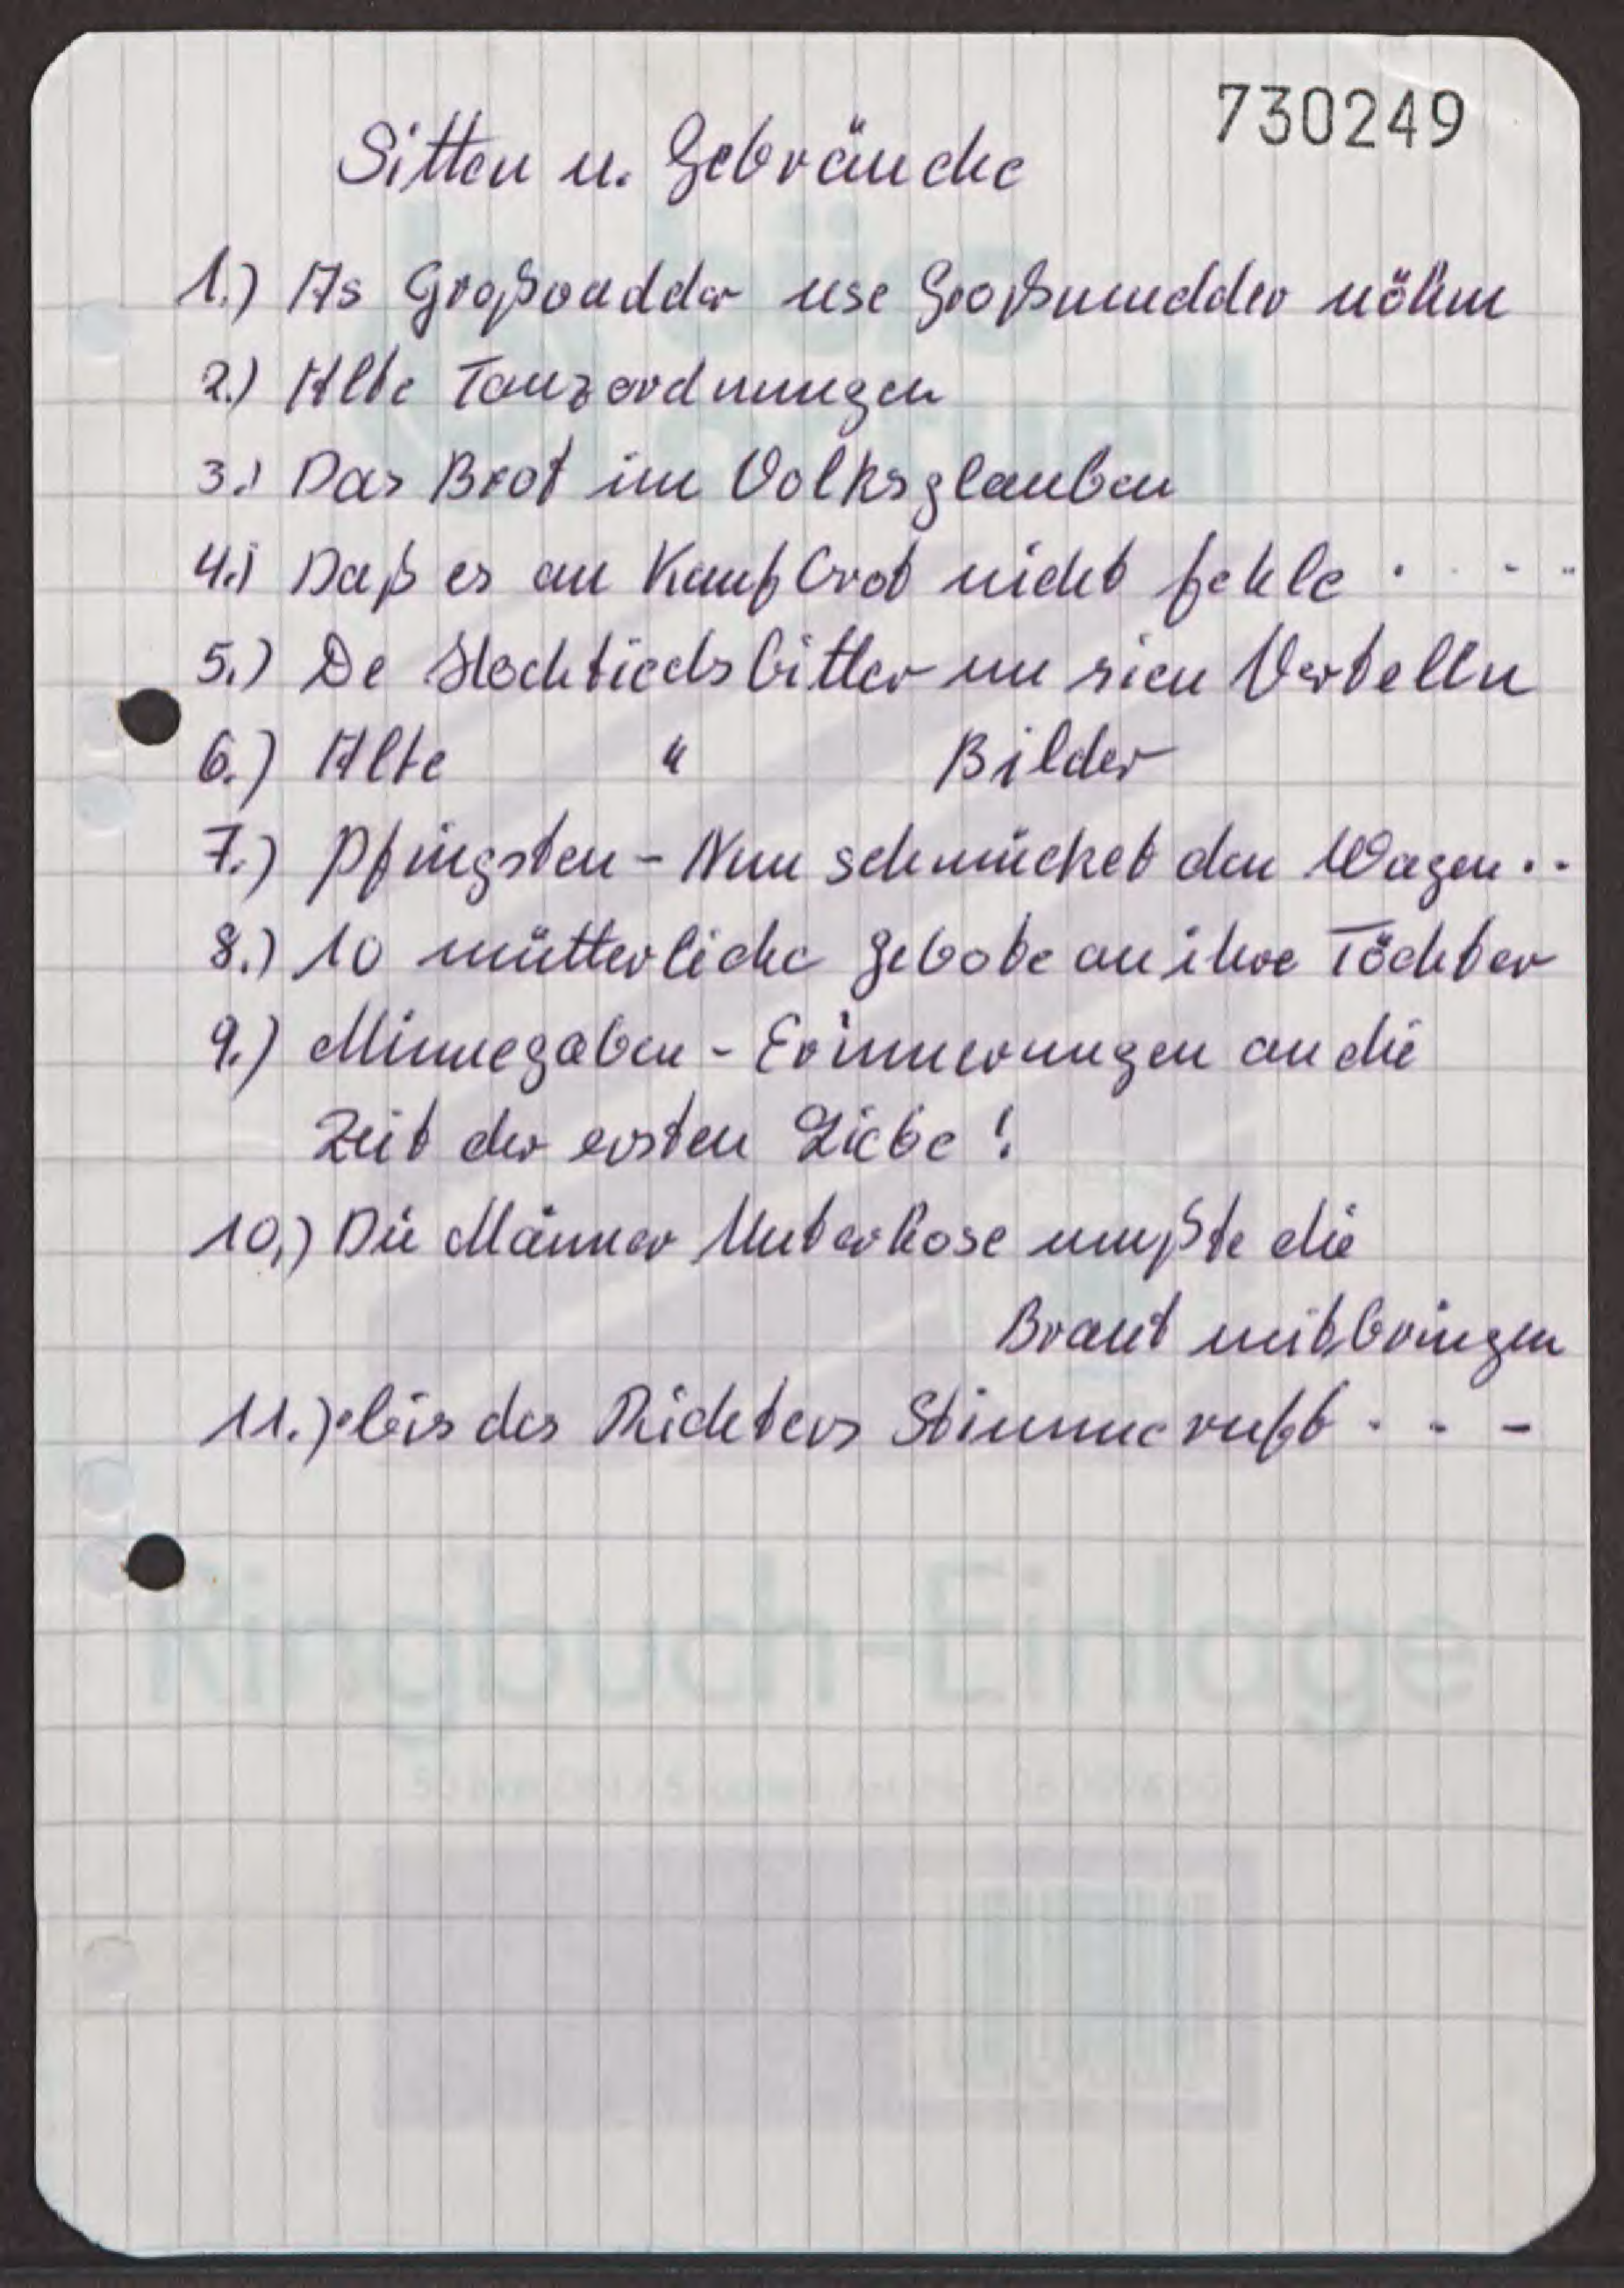 730249
Sitten u. Gebräuche
1.) As Großvadder use Großmudder nöhm
2.) Alte Tanzordnungen
3.) Das Brot im Volksglauben
4.) Daß es an Kaufbrot nicht fehle . . . .
5.) De Hochtiedsbitter un sien Vertelln
6.) Alte " Bilder
7.) Pfingsten - Nun schmücket den Wagen . .
8.) 10 mütterliche Gebote an ihre Töchter
9.) Minnegaben - Erinnerungen an die
Zeit der ersten Liebe!
10.) Die Männer Unterhose mußte die
Braut mitbringen
11.) bis des Richters Stimme ruft . . -
Ringbuch-Einlage